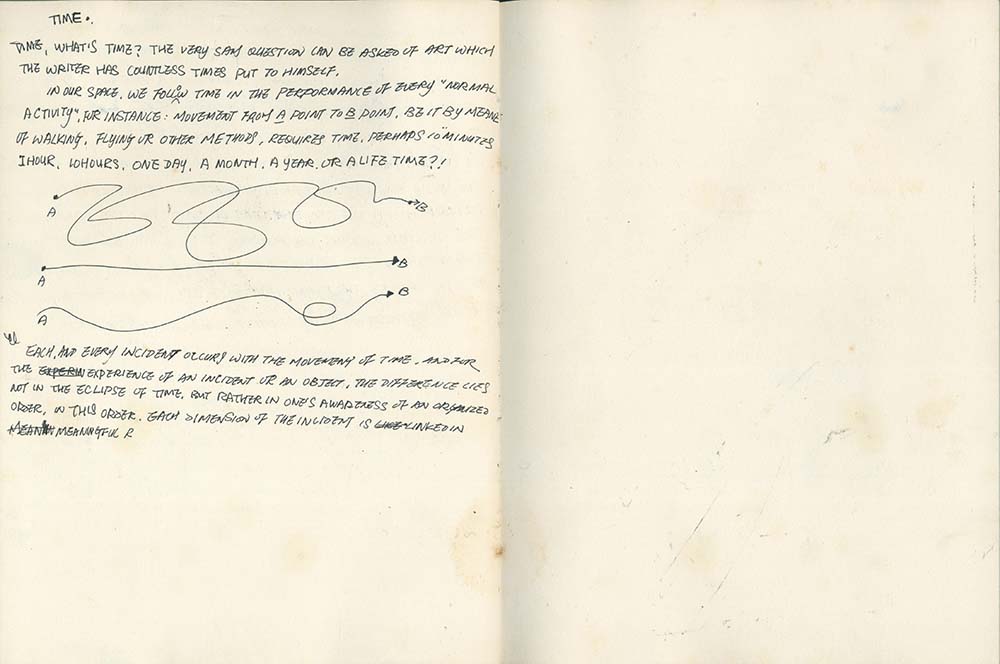 TIME.
TIME, WHAT'S TIME? THE VERY SAM QUESTION CAN BE ASKED OF ART WHICH
THE WRITER HAS COUNTLESS TIMES PUT TO HIMSELF.
IN OUR SPACE. WE FOLLOW TIME IN THE PERFORMANCE OF EVERY "NORMAL
ACTIVITY", FOR INSTANCE: MOVEMENT FROM A POINT TO B POINT, BE IT BY MEANS
OF WALKING, FLYING OR OTHER METHODS, REQUIRES TIME, PERHAPS 10 MINUTES
1 HOUR, 10 HOURS, ONE DAY, A MONTH, A YEAR, OR A LIFE TIME?!
A B
A B
A B
EACH AND EVERY INCIDENT OCCURS WITH THE MOVEMENT OF TIME. AND FOR
THE EXPERIENCE OF AN INCIDENT OR AN OBJECT, THE DIFFERENCE LIES
NOT IN THE ECLIPSE OF TIME, BUT RATHER IN ONE'S AWARENESS OF AN ORGANIZED
ORDER, IN THIS ORDER. EACH DIMENSION OF THE INCIDENT IS LINKED IN
MEANINGFUL R